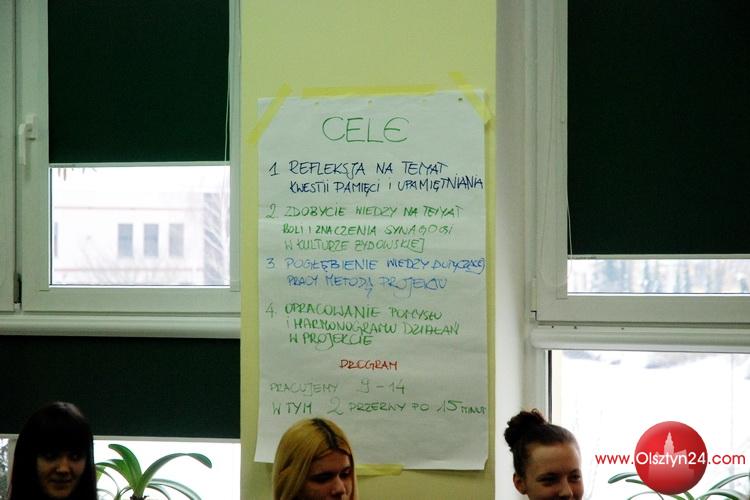 CELE
1. REFLEKSJA NA TEMAT
KWESTII PAMIĘCI I UPAMIĘTNIANIA
2. ZDOBYCIE WIEDZY NA TEMAT
ROLI I ZNACZENIA SYNAGOGI
W KULTURZE ŻYDOWSKIEJ
3. POGŁĘBIENIE WIEDZY DOTYCZĄCEJ
PRACY METODĄ PROJEKTU
4. OPRACOWANIE POMYSŁU
I HARMONOGRAMU DZIAŁAŃ
W PROJEKCIE
PROGRAM
PRACUJEMY 9-14
W TYM 2 PRZERWY PO 15 MINUT
www.Olsztyn24.com